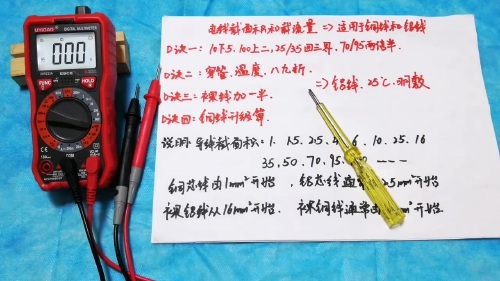 DIGITAL MULTIMETER
000
电线截面积和载流量 => 适用于铜线和铝线
口诀一: 10下5.100上二, 25/35四三界. 70/95两倍半.
口诀二: 穿管.温度.八九折.
=> 铝线.25℃.明敷
口诀三: 裸线加一半.
口诀四: 铜线升级算.
说明: 导线截面积: 1. 1.5. 2.5. 4. 6. 10. 25. 16
35, 50. 70. 95.
铜芯线由1mm²开始, 铝芯线 2.5mm²开始
裸铝线从16mm²开始. 裸铜线通常由 mm²开始.